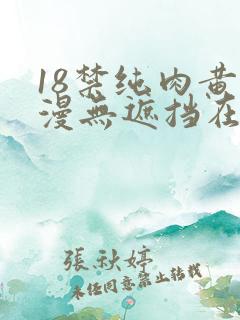 18禁纯肉黄
漫無遮挡在
張秋婷
未经同意禁止转载